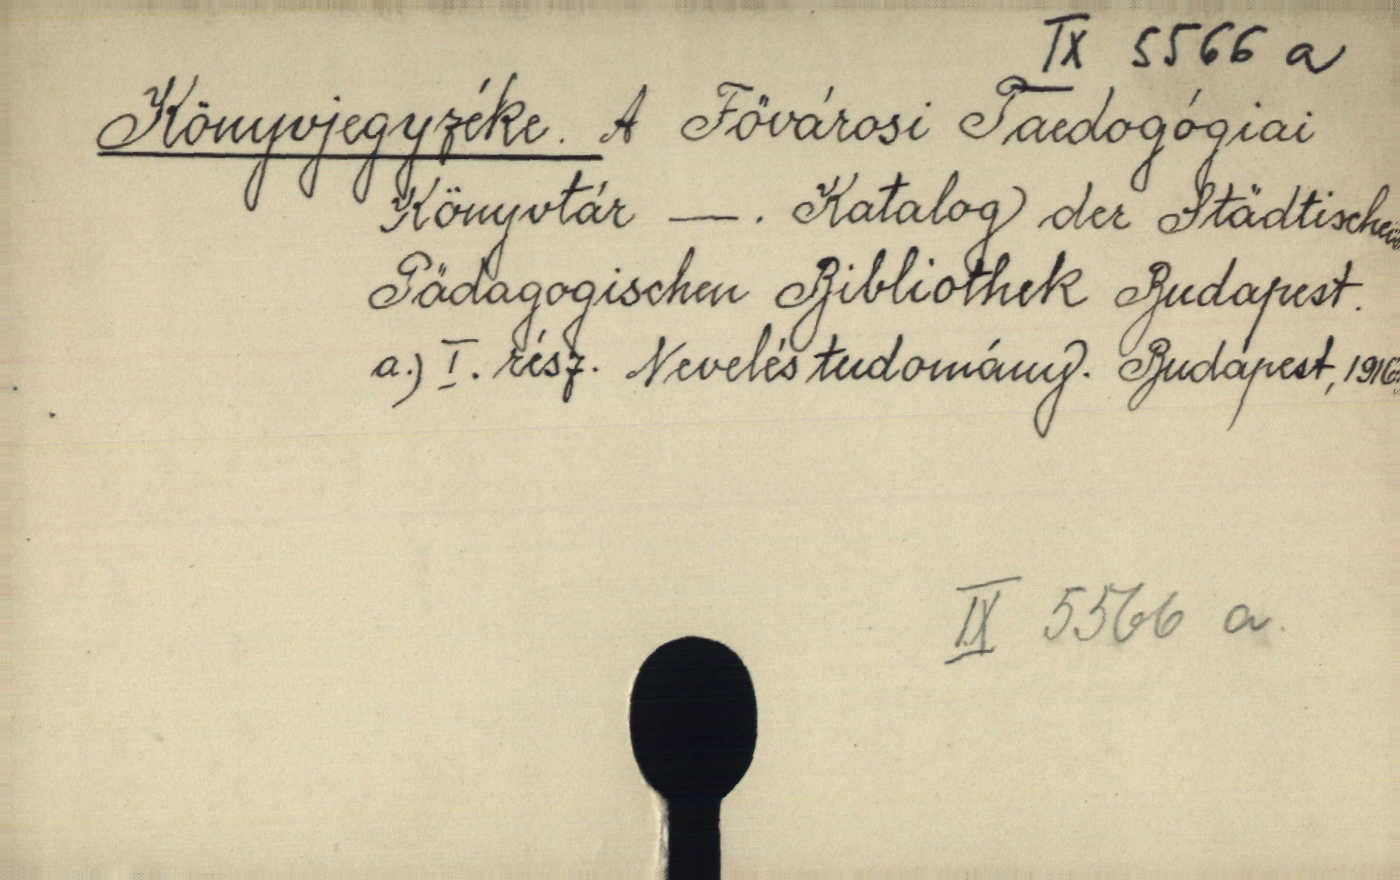 IX 5566 a
Könyvjegyzéke. A Fővárosi Paedogógiai
Könyvtár —. Katalog der Städtischen
Pädagogischen Bibliothek Budapest.
a.) I. rész. Neveléstudomány. Budapest, 1916
IX 5566 a.